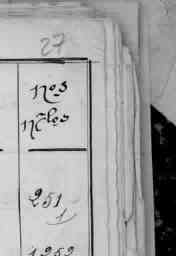 27
Nos
251
1
1252